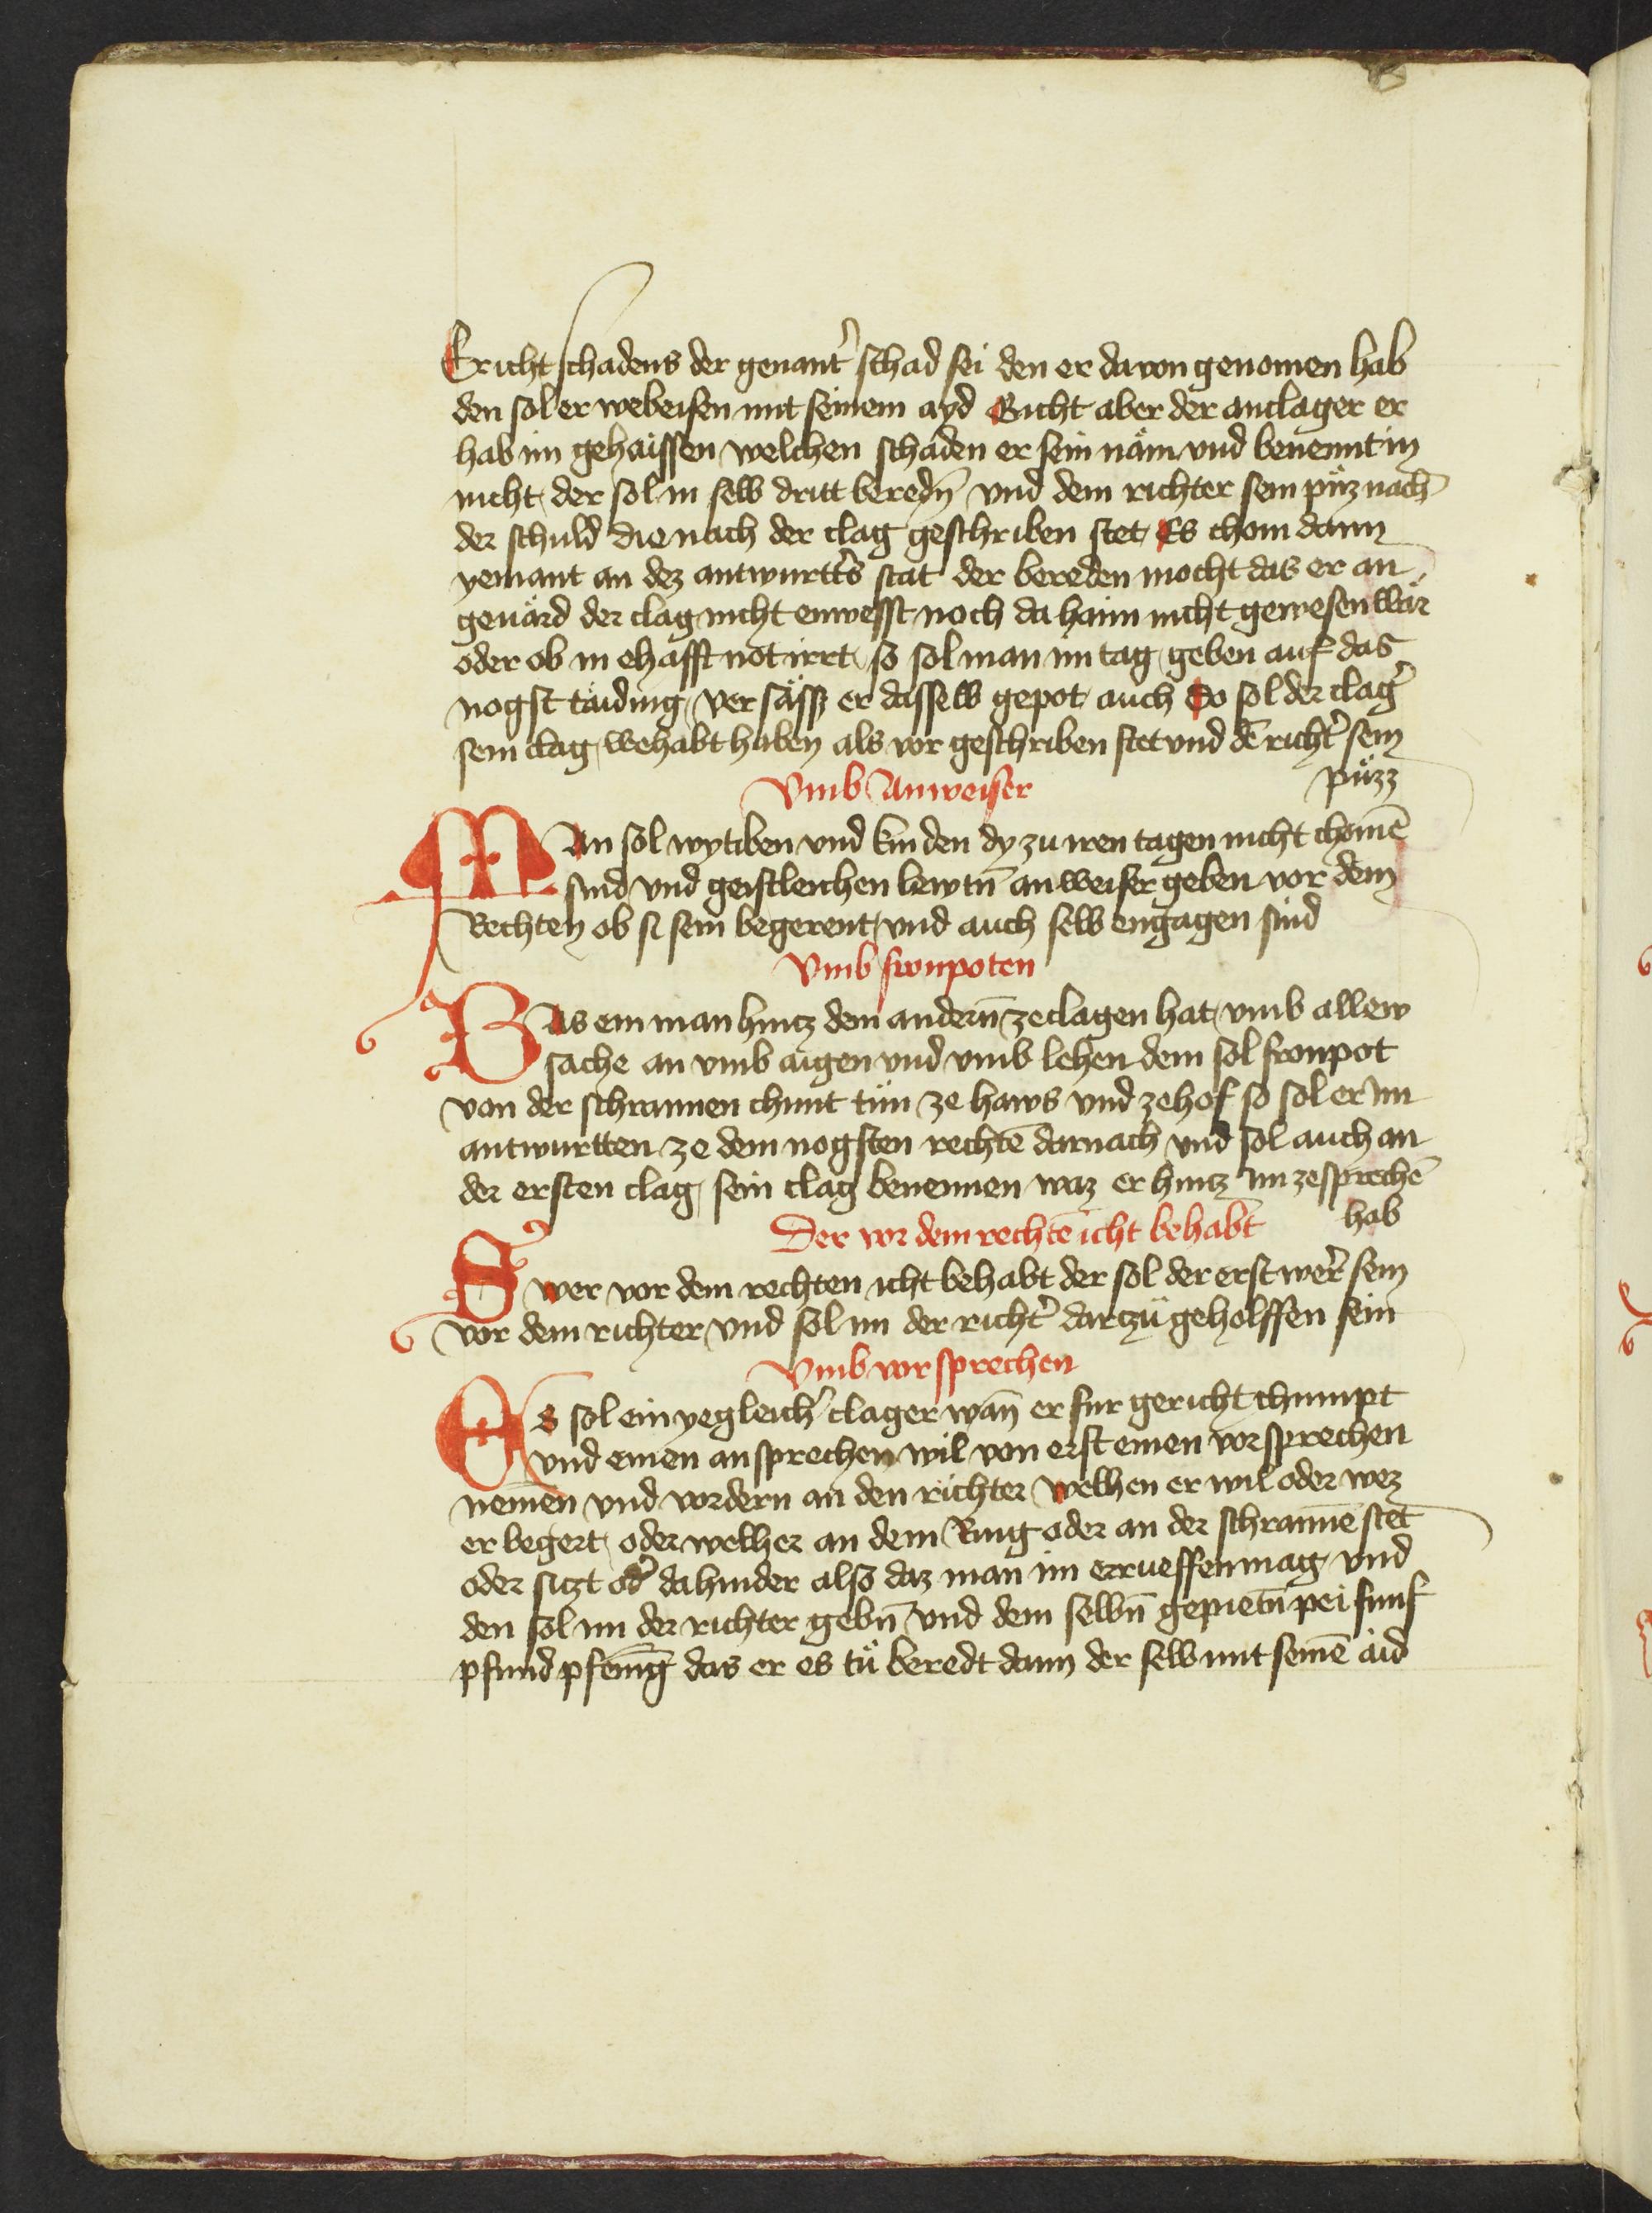 Er icht schadens der genant' schad sei den er davon genomen hab
den sol er webeisen mit seinem ayd Gicht aber der anclager er
hab im gehaissen welchen schaden er sein näm und benennt in
nicht der sol in selb dritt beredn̄ vnd dem richter sein püz nach
der schuld die nach der clag geschriben stet Es chom dann
yemant an dez antwurtt's stat der bereden mocht das er an
geuärd der clag nicht enwesst noch da haim nicht gewesen wär
oder ob in ehafft not irrt so sol man im tag geben auf das
nogst täiding versäss er dasselb gepot auch So sol der clag'
sein clag wehabt haben als vor geschriben stet vnd dē richt' sein
püzz
Vmb Anweiser
MAn sol wytiben vnd kinden dy zu iren tagen nicht chomē
sind vnd geistleichen lewtn̄ anweiser geben vor dem
Rechten ob si sein begerent vnd auch selb engagen sind
Vmb fronpoten
WAs ein man hintz dem andern̄ ze clagen hat vmb allew
sache an vmb aigen vnd vmb lehen dem sol fronpot
von der schrannen chunt tün ze haws vnd ze hof so sol er im
antwurtten ze dem nogsten rechtē darnach vnd sol auch an
der ersten clag sein clag benennen waz er hintz im ze sprechē
hab
Der vor dem rechtē icht behabt
Swer vor dem rechten icht behabt der sol der erst wer' sein
vor dem richter vnd sol im der richt' dartzü geholffen sein
Vmb vorsprechen
Es sol ein yegleich' clager wan̄ er fur gericht chumpt
vnd einen ansprechen wil von erst einen vorsprechen
nemen vnd vordern an den richter welhen er wil oder wez
er begert oder welher an dem Ring oder an der schrannē stet
oder sitzt od' dahinder also daz man im errueffen mag vnd
den sol im der richter gebn̄ vnd dem selbn̄ gepietn̄ pei funf
pfund pfenīg das er es tü beredt dann der selb mit seinē aid